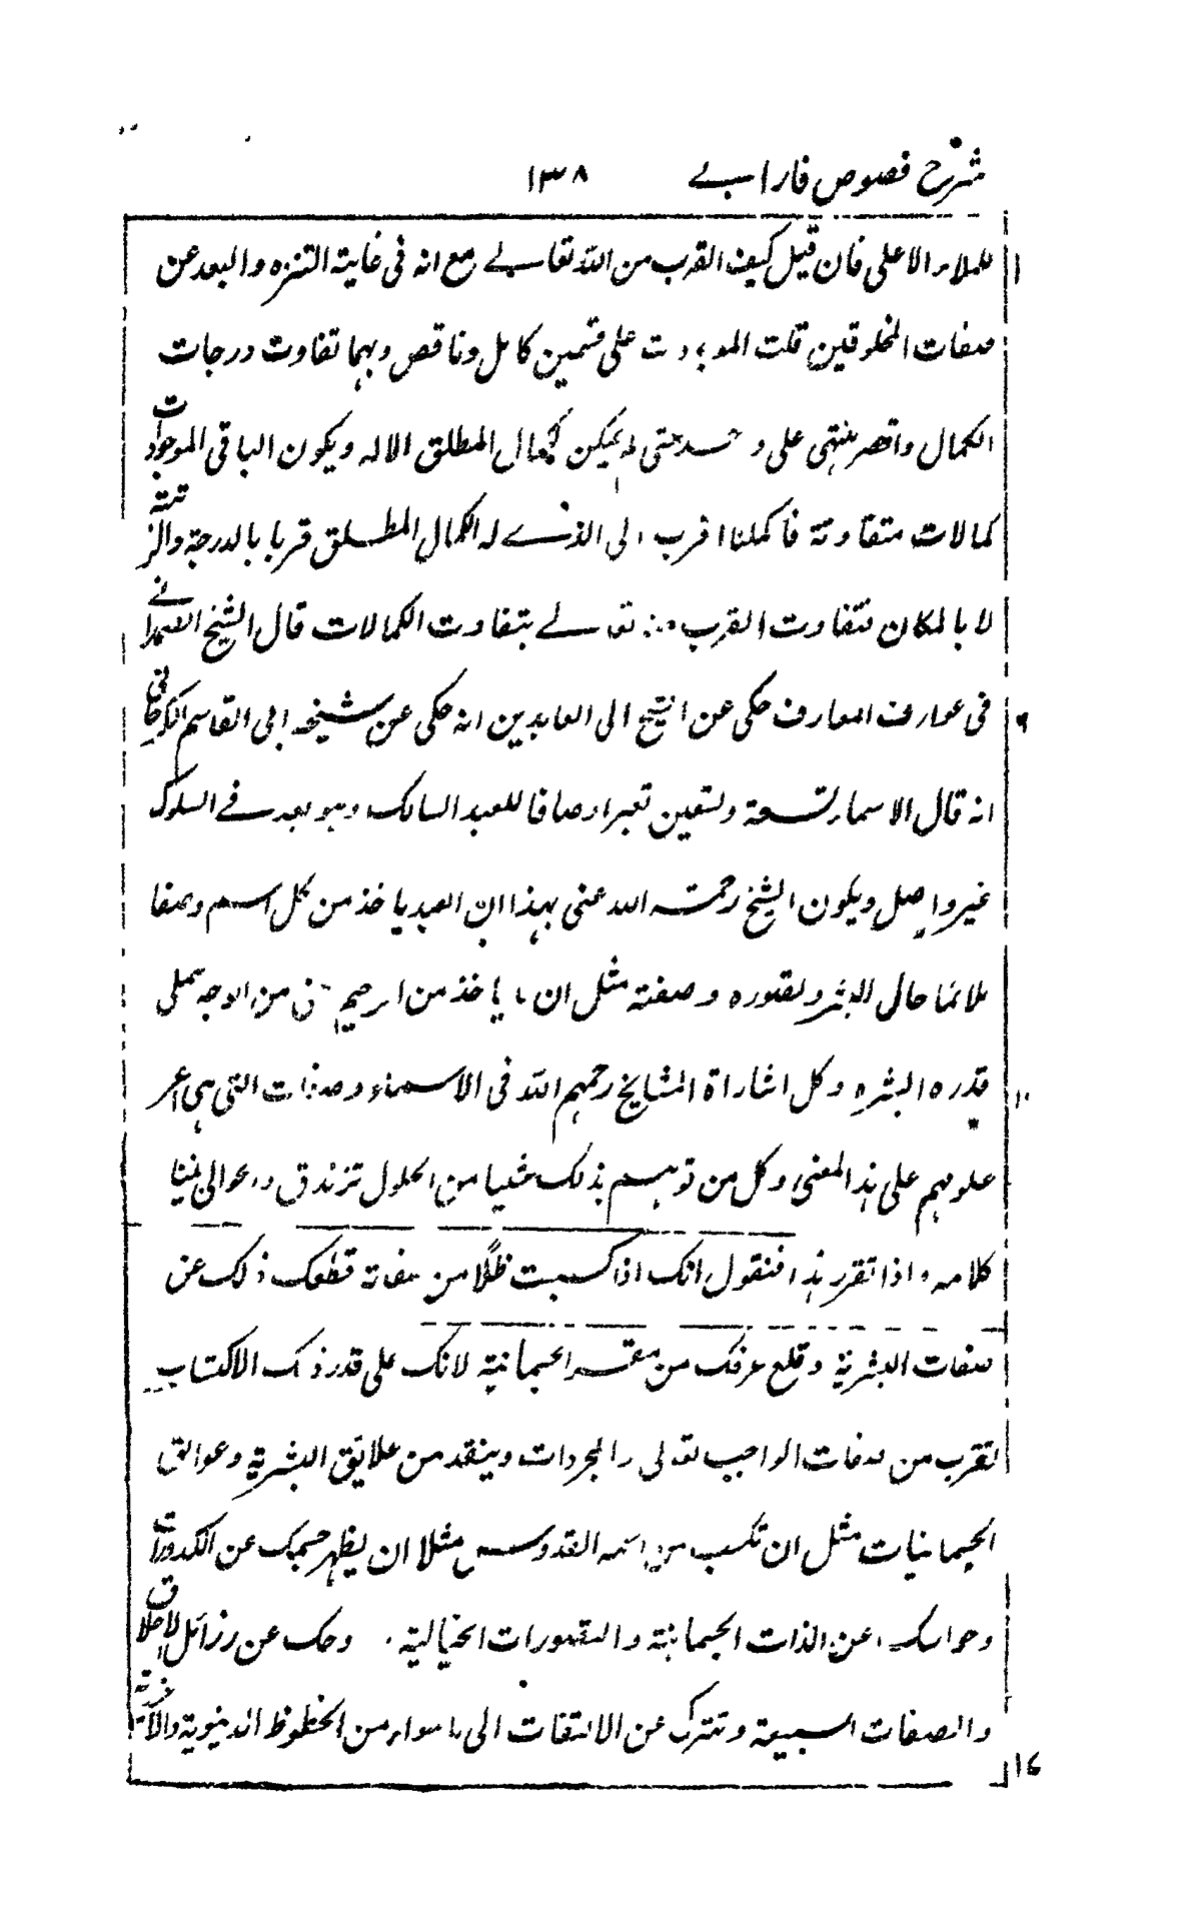 شرح فصوص فارابے ١٣٨
للملاء الاعلى فان قيل كيف القرب من الله تعالے مع انه فى غاية التنزه والبعد عن
صفات المخلوقين قلت على قسمين كامل وناقص وبهما تفاوت درجات
الكمال ينتهى على حتى لم يمكن كمال المطلق الا له ويكون الباقى الموجودات
كمالات متفاوتة فاكملنا اقرب الى الذے له الكمال المطلق قربا بالدرجة والرتبة
لا بالمكان فتفاوت القرب تعالے بتفاوت الكمالات قال الشيخ الصمدانے
فى عوارف المعارف حكى عن الشيخ الى العابدين انه حكى عن شيخه ابى القاسم الكرجانى
انه قال الاسماء لتسعة ولتسعين تعبر اوصافا للعبد السالك وهو بعد فے السلوك
غير واصل ويكون الشيخ رحمة الله عنى بهذا ان العبد ياخذ من كل اسم وصفا
ملائما حال البشر وقصوره وصفته مثل ان ياخذ من الرحيم من الوجه على
قدره البشره وكل اشاراة المشايخ رحمهم الله فى الاسماء وصفات التى هى اعز
علومهم على هذا المعنى وكل من توهم بذلك شيا من الحلول تزندق
كلامه واذا تقرر هذا فنقول انك اذا كسبت ظلًا من صفاته قطعك ذلك عن
صفات البشرية وقلع عرقك من مغرس الجسمانية لانك على قدر ذلك الاكتساب
تقرب من صفات الواجب تعالى والمجردات وينقد من علايق البشرية وعوائق
الجسمانيات مثل ان تكسب من اسمه القدوس مثلا ان يطهر جسمك عن الكدورات
وحواسك عن الذات الجسمانية والتصورات الخيالية وحك عن رزائل الاخلاق
والصفات السبعية وتترك عن الالتفات الى ما سواه من الحظوظ الدنيوية والآخرته
١
٦
١٠
١٧